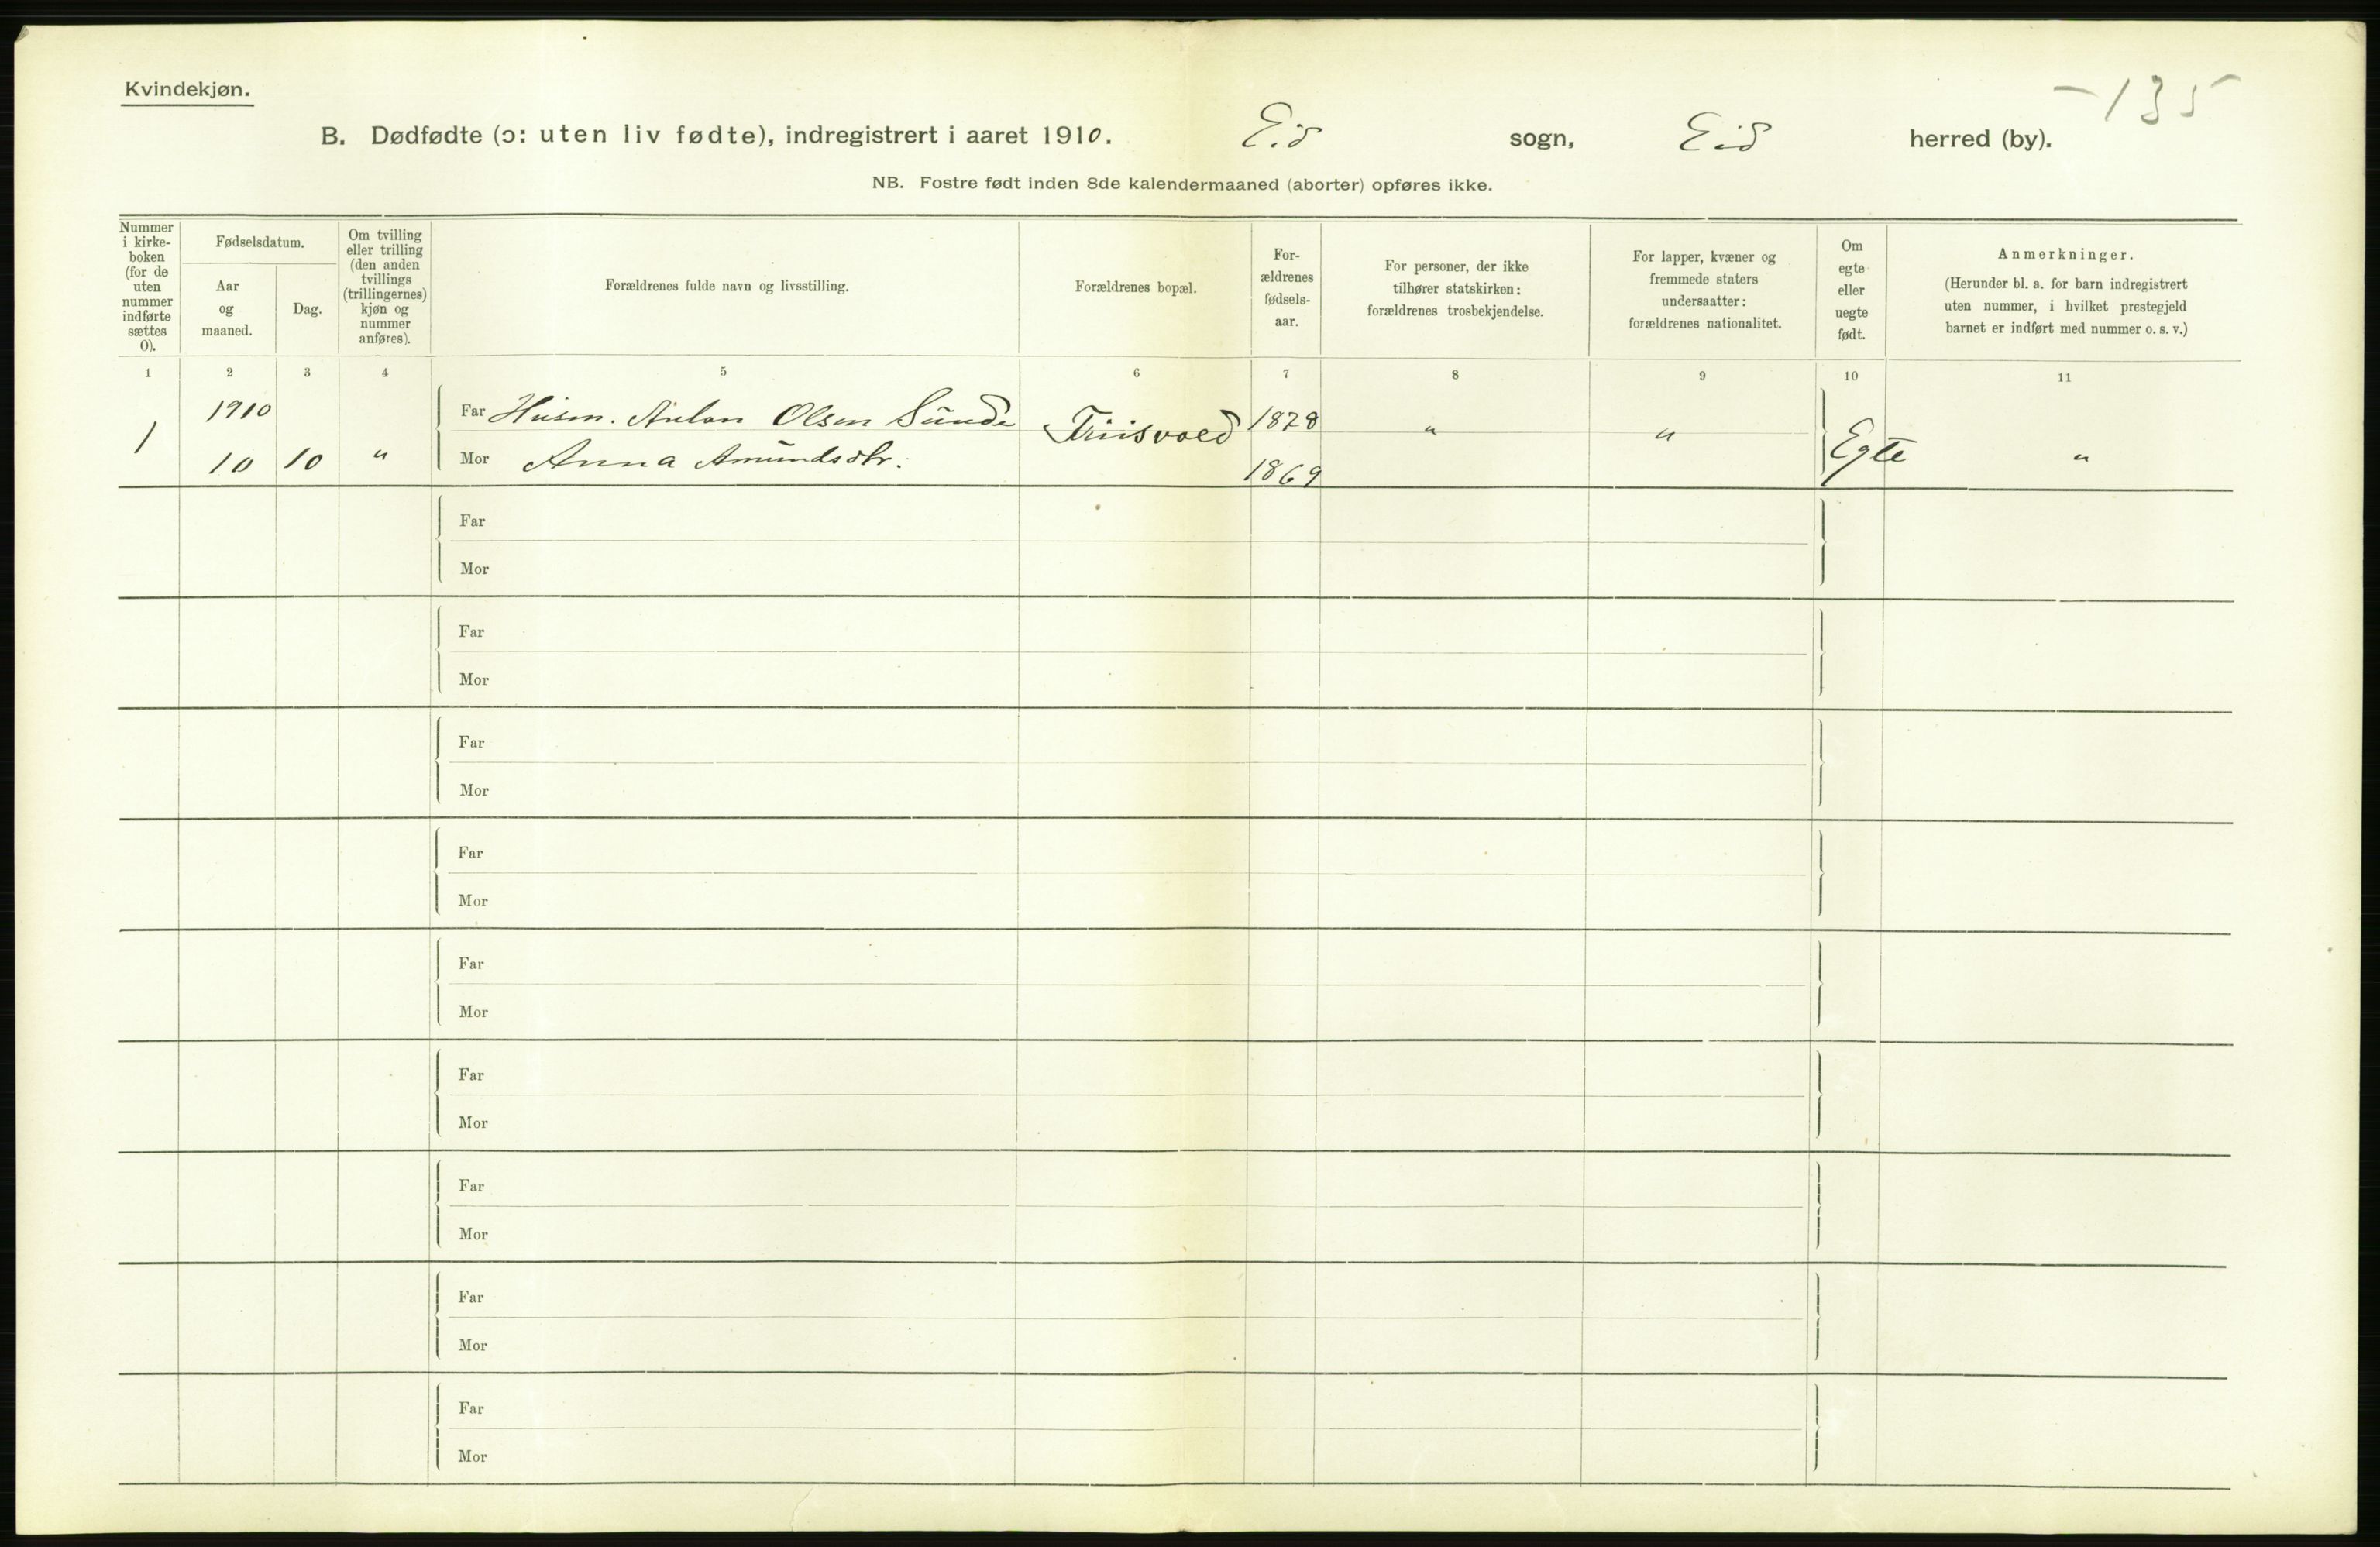 Kvindekjøn.
-135
B. Dødfødte (ɔ: uten liv fødte), indregistrert i aaret 1910. Eid sogn, Eid herred (by).
NB. Fostre født inden 8de kalendermaaned (aborter) opføres ikke.
Nummer i kirke-boken (for de uten nummer indførte sættes 0).
Fødselsdatum.
Aar og maaned.
Dag.
Om tvilling eller trilling (den anden tvillings (trillingernes) kjøn og nummer anføres).
Forældrenes fulde navn og livsstilling.
Forældrenes bopæl.
For-ældrenes fødsels-aar.
For personer, der ikke tilhører statskirken: forældrenes trosbekjendelse.
For lapper, kvæner og fremmede staters undersaatter: forældrenes nationalitet.
Om egte eller uegte født.
Anmerkninger.
(Herunder bl. a. for barn indregistrert uten nummer, i hvilket prestegjeld barnet er indført med nummer o. s. v.)
1 2 3 4 5 6 7 8 9 10 11
1910 Far Husm. Anton Olsen Sunde 1878
1 Triisvold " " Egte
10 10 " Mor Anna Amundsdtr. 1869 "
Far
Mor
Far
Mor
Far
Mor
Far
Mor
Far
Mor
Far
Mor
Far
Mor
Far
Mor
Far
Mor